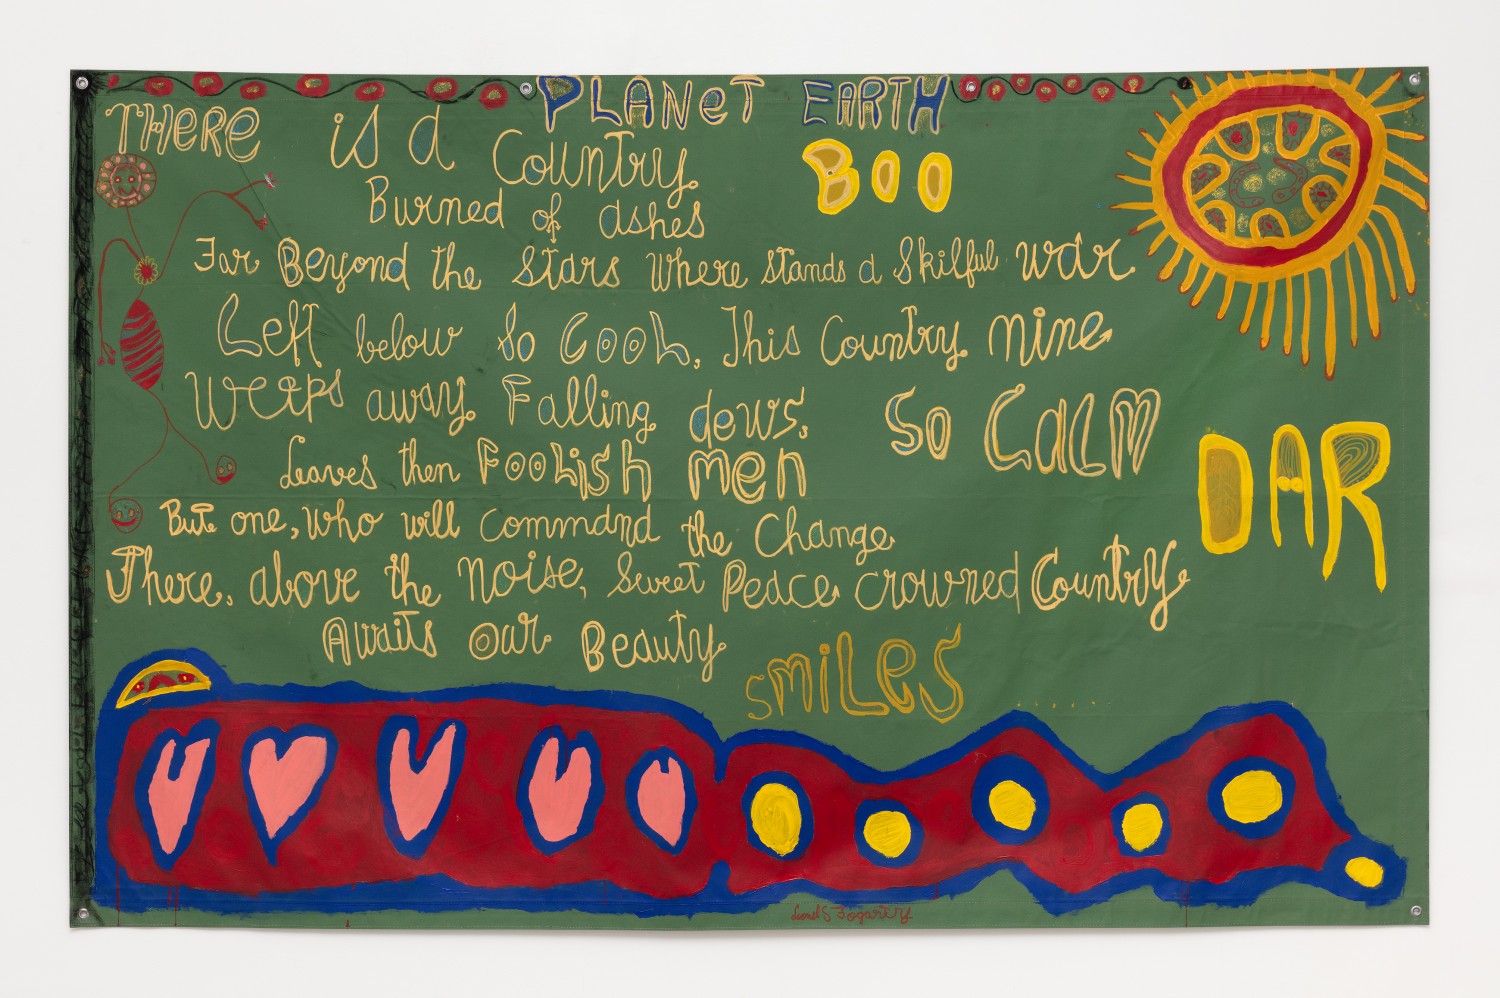 PLANET EARTH
THERE is a Country
BOO
Burned of ashes
Far Beyond the Stars Where stands a Skilful war
Left below so COOL, This Country nine
Weeps away Falling dews,
SO CALM
Leaves then FOOLish men
DAR
But one, who will command the Change
There, above the Noise, Sweet Peace crowned Country
Awaits Our Beauty
SMiLeS
Lionel G Fogarty